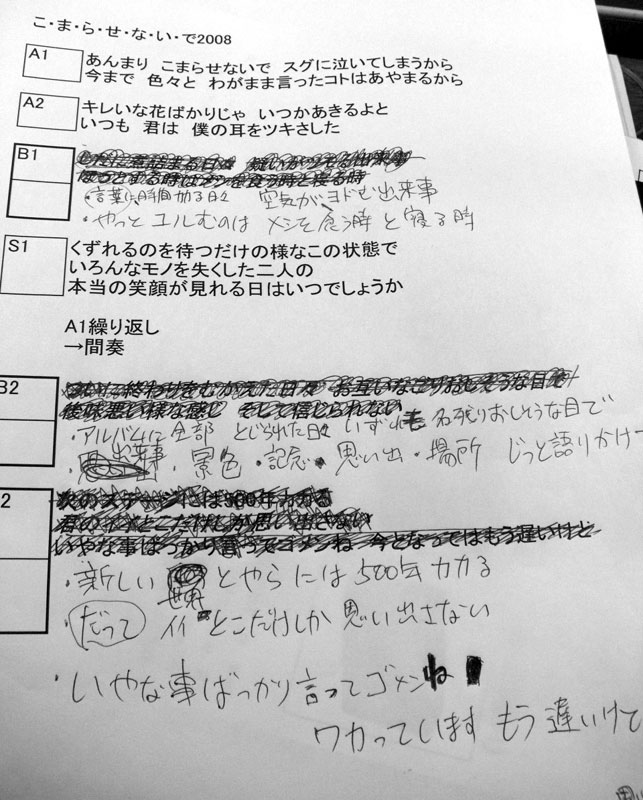 こ・ま・ら・せ・な・い・で2008
A1
あんまり こまらせないで スグに泣いてしまうから
今まで 色々と わがまま言ったコトはあやまるから
A2
キレいな花ばかりじゃ いつかあきるよと
いつも 君は 僕の耳をツキさした
B1
・言葉に時間かかる日々 空気がヨドむ出来事
・やっと ユルむのは メシを食う時と寝る時
S1
くずれるのを待つだけの様なこの状態で
いろんなモノを失くした二人の
本当の笑顔が見れる日はいつでしょうか
A1繰り返し
→間奏
B2
終わりをむかえた日々
後味悪い様な感じ そして信じられない
・アルバムに全部 とじられた日々 いずれも 名残りおしそうな目で
出来事
・景色・記念・思い出・場所 じっと語りかけー
2
いやな事ばっかり言ってゴメンね 今となってはもう遅いけど
・新しい とやらには500年カカる
世界
・だって イイとこだけしか 思い出さない
・いやな事ばっかり言ってゴメンね
ワカっています もう遅いけど